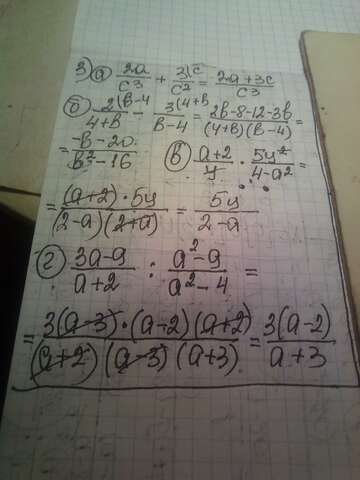 3) а) 2a/c³ + 3(c/c² = 2a+3c/c³
б) 2(в-4/4+в - 3(4+в/в-4 = 2в-8-12-3в/(4+в)(в-4)
= -в-20/в²-16 в) a+2/y · 5y²/4-a² =
= (a+2)·5y/(2-a)(2+a) = 5y/2-a
г) 3a-9/a+2 : a²-9/a²-4 =
= 3(a-3)·(a-2)(a+2)/(a+2)(a-3)(a+3) = 3(a-2)/a+3